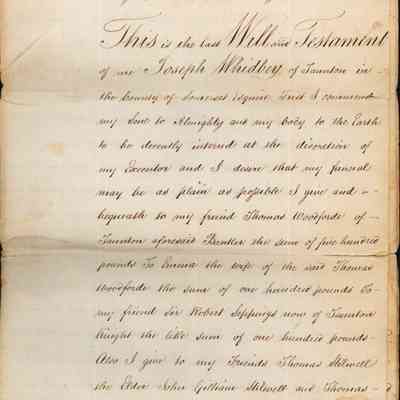 This is the last Will and Testament
of me Joseph Whidbey of Taunton in
the County of Somerset Esquire First I commend
my Soul to Almighty and my body to the Earth
to be decently interred at the discretion of
my Executor and I desire that my funeral
may be as plain as possible I give and
bequeath to my friend Thomas Woodforde of
Taunton aforesaid Banker the sum of five hundred
pounds To Emma the wife of the said Thomas
Woodforde the sum of one hundred pounds To
my friend Sir Robert Seppings now of Taunton
Knight the like sum of one hundred pounds
Also I give to my Friends Thomas Stilwell
the Elder John Gilliam Stilwell and Thomas